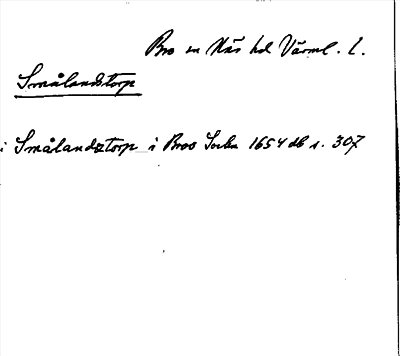 Bro sn Näs hd Värml. l.
Smålandstorp
i Smålandztorp i Broo Sockn 1654 db s. 307